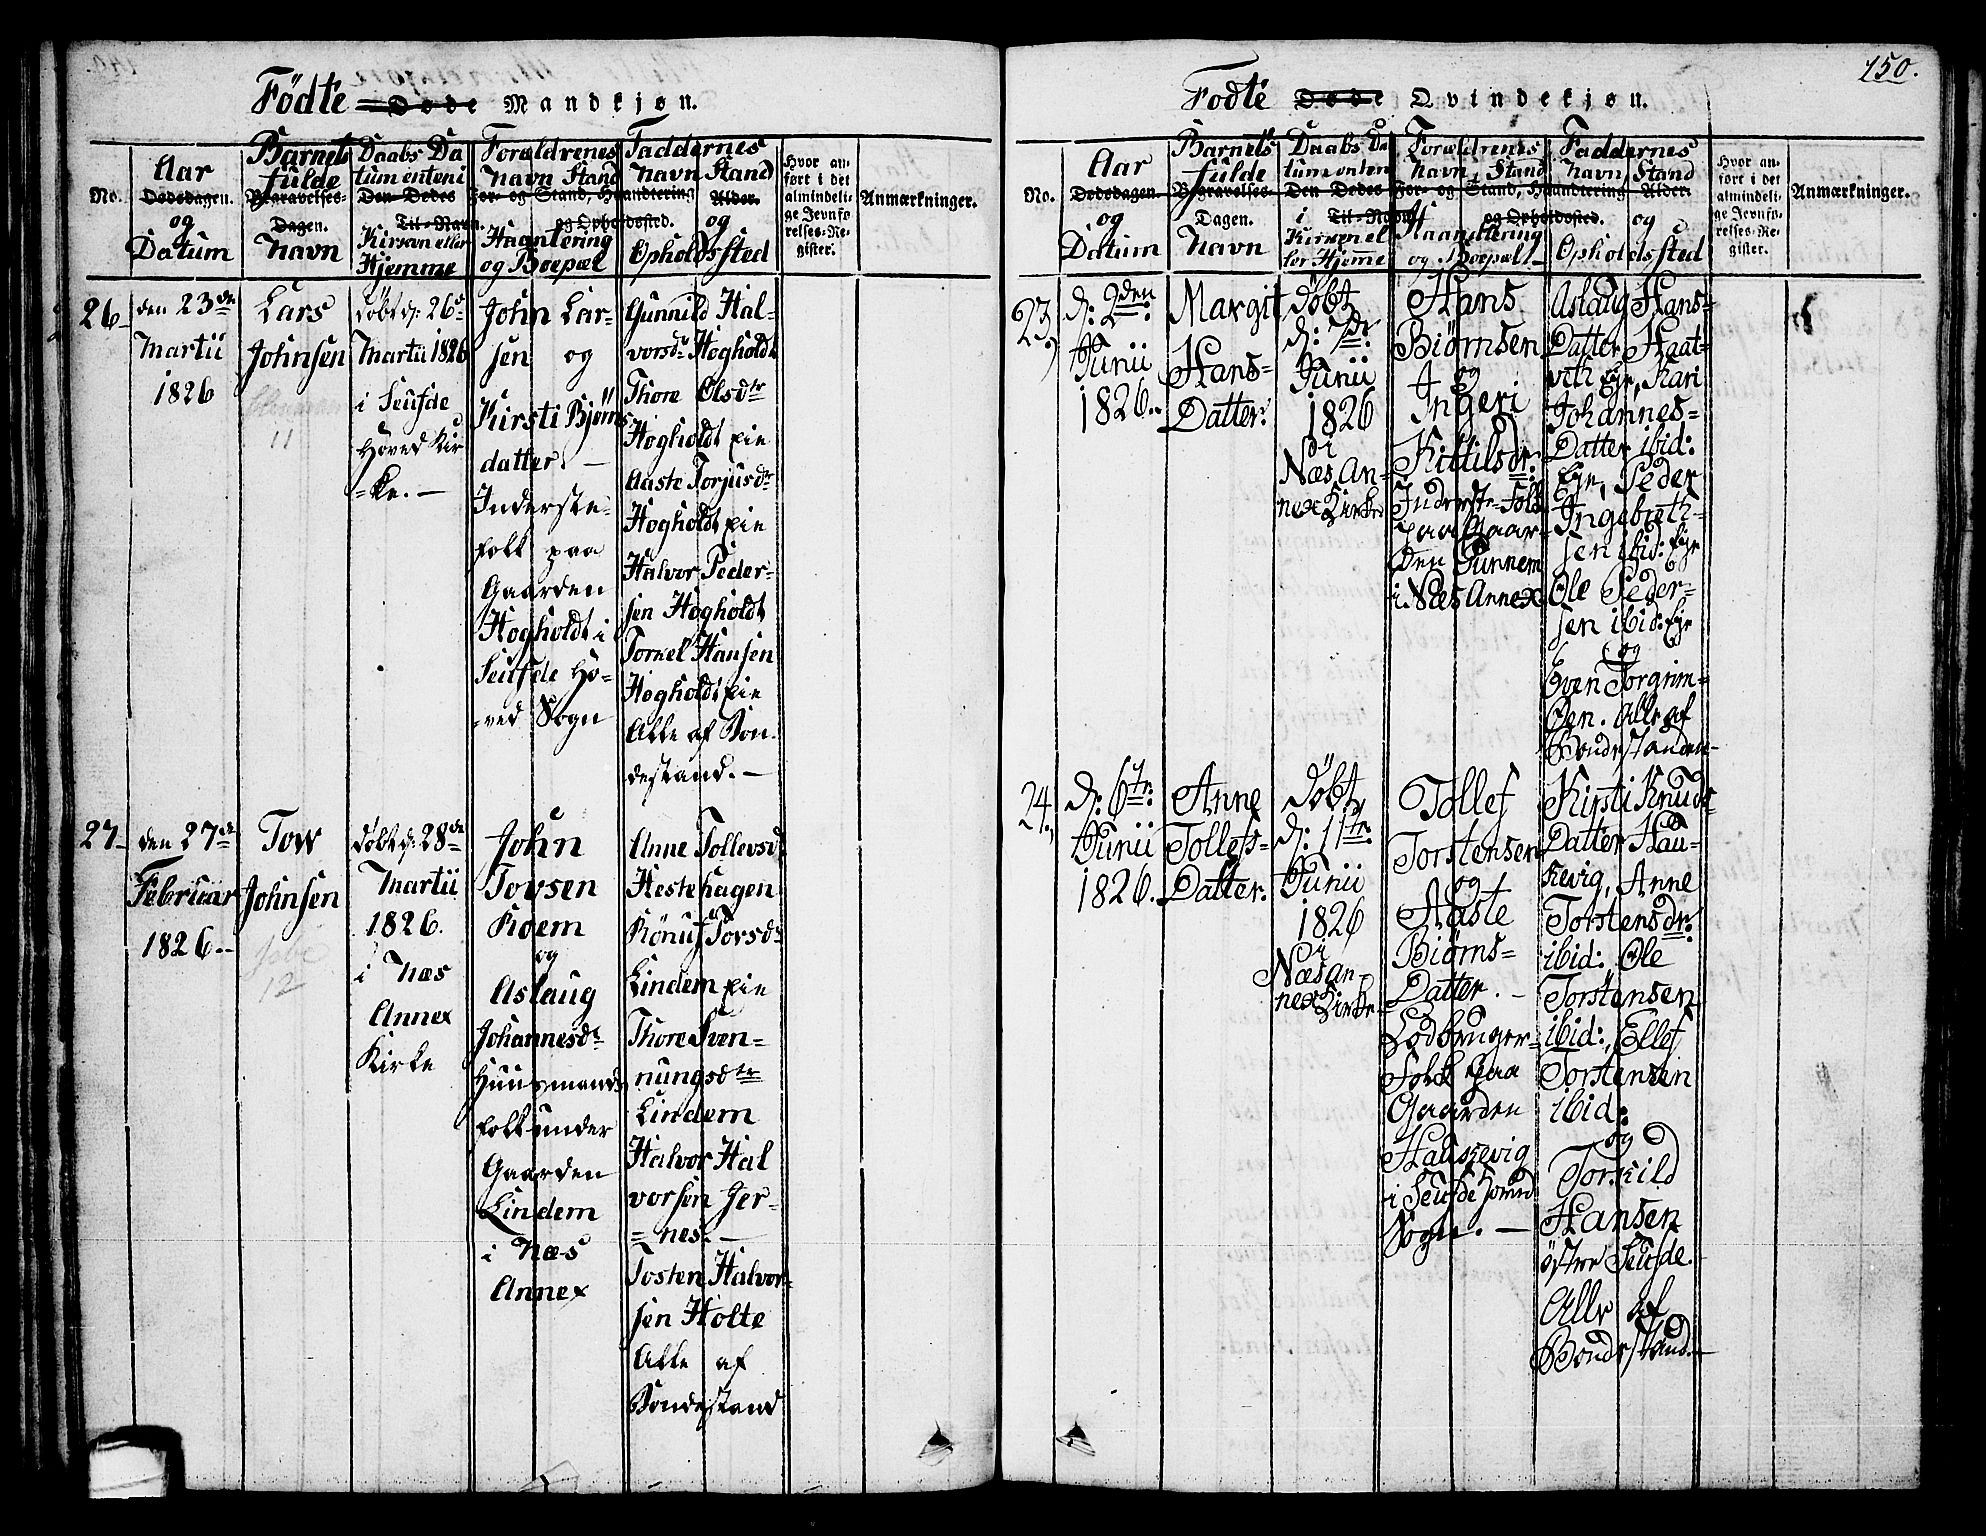 Födte Døde Mandkjøn.
No.
Aar
Dødsdagen.
og
Datum
Barnets
fulde
Begravelses-
Dagen.
Navn
Daabs Da
tum enten i
Den Dødes
Til-Navn.
Kirken eller
Hjemme
Forældrenes
Navn Stand
For- og Stand, Haandtering
og Opholdssted.
Haantering
og Boepæl
Faddernes
Navn Stand
Alder.
og
Opholdssted
Hvor an-
ført i det
almindeli-
ge Jevnfø-
relses-Re-
gister.
Anmærkninger.
26
den 23de
Martii
1826
Lars
Johnsen
11
døbt d: 26d
Martii 1826
i Seufde
Hoved Kir
=ke. —
John Lar-
sen og
Kirsti Bjørns
datter. —
Inderste-
folk paa
Gaarden
Hogholdt i
Seufde Ho=
=ved Sogn
Gunnild Hal-
vorsdr Hogholdt
Thore Olsdtr
Hogholdt Eie
Aaste Torjusdr
Hogholdt Eie
Halvor Peder-
sen Hogholdt
Torkel Hansen
Hogholdt Eie
Alle af Bon-
destand. —
27
den 27de
Februar
1826..
Tow
Johnsen
12
døbt d: 28de
Martii
1826.
i Næs
Annex
Kirke
John
Tovsen
Roem
og
Aslaug
Johannesdr
Huusmands
folk under
Gaarden
Lindem
i Næs
Annex
Anne Tollevsd
Hestehagen
Kønuf Torsdr
Lindem Eie
Thore Sven-
nungsdtr
Lindem
Halvor Hal
vorsen Jer-
=nes. —
Tosten Halvor-
sen Holte
Alle af
Bondestand
150.
Fodte Døde Qvindekjøn.
No.
Aar
Dødsdagen.
og
Datum
Barnets
fulde
Begravelses-
Dagen.
Navn
Daabs Da
tum enten
Den Dødes
i Til-Navn.
Kirken el
ler Hjeme
Forældrenes
Navn, Stand
For- og Stand, Haandtering
og Opholdssted.
Haandtering
og Boepæl
Faddernes
Navn, Stand
Alder.
og
Opholdsted
Hvor an-
ført i det
almindeli-
ge Jevnfø-
relses-Re-
gister.
Anmærkninger.
23.)
d: 2den
Junii
1826..
Margit
Hans-
Datter.
döbt
d: 7de
Junii
1826
i
Næs An-
nex Kirke
Hans
Biørnsen
og
Ingeri
Kittilsdr:
Inderste-Folk
paa Gaar-
den Tunnem
i Næs Annex
Aslaug Hans-
Datter Haat-
vet Eje, Kari
Johannes-
Datter ibid:
Eje, Peder
Ingebreth-
sen ibid: Eje
Ole Peder-
sen ibid: Eje
og
Even Torgrim-
sen. Alle af
Bondestanden
24.)
d: 6te
Junii
1826.
Anne
Tollefs-
Datter.
döbt
d: 11te
Junii
1826
i
Næs An-
nex Kirke
Tollef
Torstensen
og
Aaste
Biørns-
Datter. —
Lodbruger-
Folk paa
Gaarden
Haukevig
i Seufde Hoved
Sogn. —
Kirsti Knuds
Datter Hau-
kevig, Anne
Torstensdr:
ibid: Ole
Torstensen
ibid:, Ellef
Torstensen
ibid:
og
Torkild
Hansen
östre Seufde.
Alle af
Bondestand. —